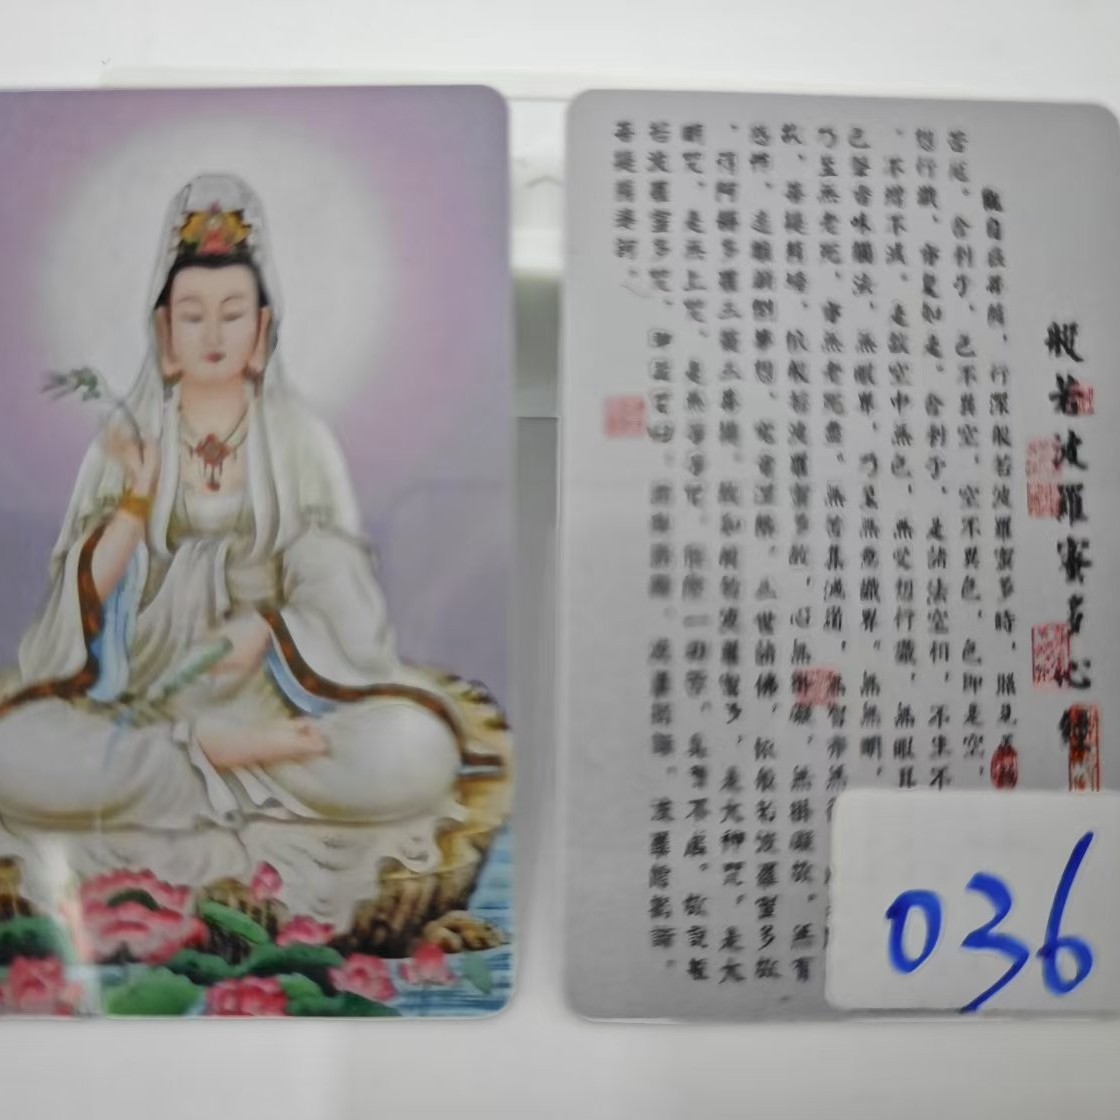 般若波羅蜜多心經
觀自在菩薩，行深般若波羅蜜多時，照見五蘊
苦厄，舍利子，色不異空，空不異色，色即是空，
想行識，亦復如是。舍利子，是諸法空相，不生不
，不增不減，是故空中無色，無受想行識，無眼耳
色聲香味觸法，無眼界，乃至無意識界。無無明，
乃至無老死，亦無老死盡，無苦集滅道，無智亦無得
故，菩提薩埵，依般若波羅蜜多故，心無掛礙，無掛礙故，無有
恐怖，遠離顛倒夢想，究竟涅槃，三世諸佛，依般若波羅蜜多故
，得阿耨多羅三藐三菩提。故知般若波羅蜜多，是大神咒，是大
明咒，是無上咒，是無等等咒。能除一切苦。真實不虛。故說般
若波羅蜜多咒，即說咒曰，揭諦揭諦。波羅揭諦。波羅僧揭諦。
菩提薩婆訶。
036